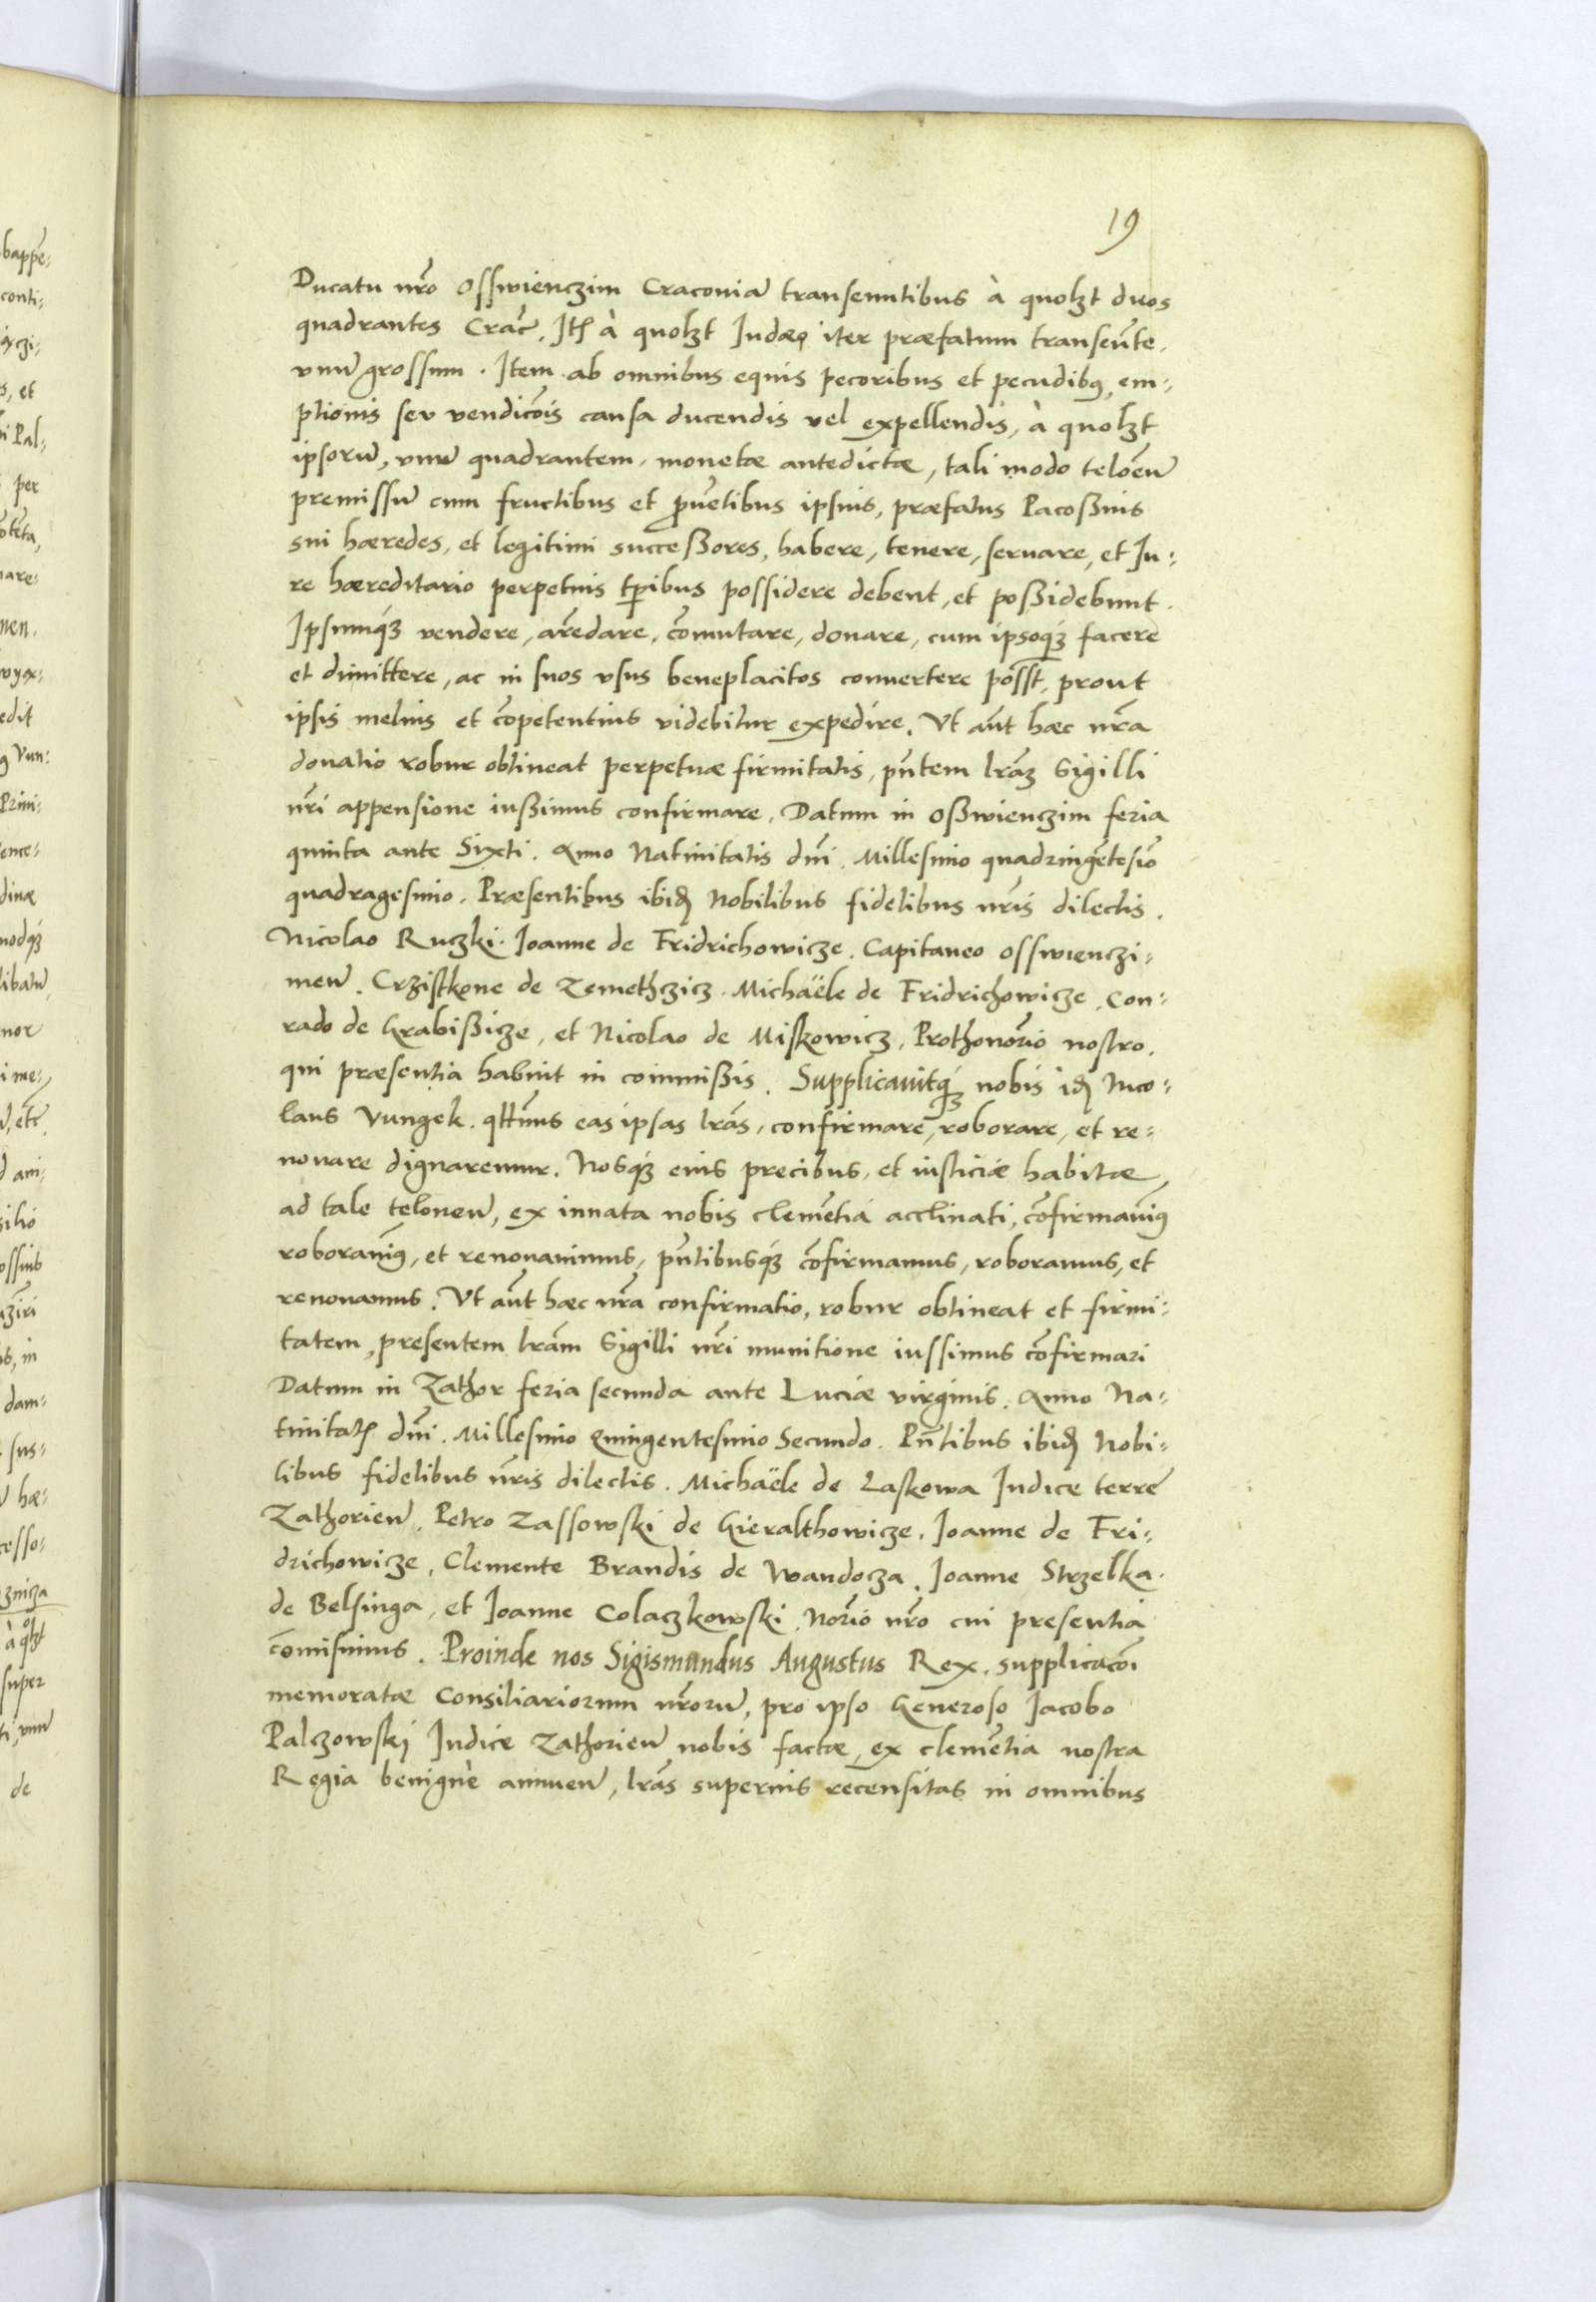 19
Ducatu nr̃o Osswienczim Cracouia transeuntibus à quolꝫt duos
quadrantes Crac̃. Itꝫ à quolꝫt Iudæo iter præfatum transeũte,
vnũ grossum. Item ab omnibus equis pecoribus et pecudibꝰ, em-
ptionis seu vendicõis causa ducendis vel expellendis, à quolꝫt
ipsorũ, vnũ quadrantem, monetæ antedictæ, tali modo telõeũ
premissũ cum fructibus et ꝓuẽtibus ipsius, præfatus Pacoßius
sui hæredes, et legitimi succeßores, habere, tenere, seruare, et Iu-
re hæreditario perpetuis tp̃ibus possidere debent, et poßidebunt.
Ipsumqꝫ vendere, arẽdare, cõmutare, donare, cum ipsoqꝫ facere
et dimittere, ac in suos vsus beneplacitos conuertere posst̃, prout
ipsis melius et cõpetentius videbitur expedire. Vt aũt hæc nr̃a
donatio robur obtineat perpetuæ firmitatis, pñtem lrãꝫ Sigilli
nr̃i appensione iußimus confirmare. Datum in Oßwienczim feria
quinta ante Sixti. Anno Natiuitatis dñi. Millesimo quadringẽtesiõ
quadragesimo. Præsentibus ibidꝫ Nobilibus fidelibus nr̃is dilectis.
Nicolao Ruczki. Ioanne de Fridrichowicze. Capitaneo Osswienczi-
meñ. Crzistkone de Zemethczicz. Michaële de Fridrichowicze, Con-
rado de Grabißicze, et Nicolao de Miskowicz, Prothonor̃io nostro,
qui præsentia habuit in commißis. Supplicauitqꝫ nobis idꝫ Nico-
laus Vungek. qt̃tnus eas ipsas lrãs, confirmare, roborare, et re-
nouare dignaremur. Nosqꝫ eius precibus, et iusticiæ habitæ
ad tale teloneũ, ex innata nobis clemẽtia acclinati, cõfirmauimꝰ
roborauimꝰ, et renouauimus, pñtibusqꝫ cõfirmamus, roboramus, et
renouamus. Vt aũt hæc nr̃a confirmatio, robur obtineat et firmi-
tatem, presentem lrãm Sigilli nr̃i munitione iussimus cõfirmari
Datum in Zathor feria secunda ante Luciæ virginis. Anno Na-
tiuitatꝫ dñi. Millesimo Quingentesimo Secundo. Pñtibus ibidꝫ Nobi-
libus fidelibus nr̃is dilectis. Michaële de Laskowa Iudice terre
Zathorieñ. Petro Zassowski de Gieralthowicze. Ioanne de Fri-
drichowicze, Clemente Brandis de Wandocza. Ioanne Strzelka.
de Belsinga, et Ioanne Colaczkowski Nor̃io nr̃o cui presentia
cõmisimus. Proinde nos Sigismundus Augustus Rex. supplicacõi
memoratæ Consiliariorum nr̃orũ, pro ipso Generoso Iacobo
Palczowski Iudice Zathorieñ nobis factæ, ex clemẽtia nostra
Regia benignè annueñ, lrãs superius recensitas in omnibus